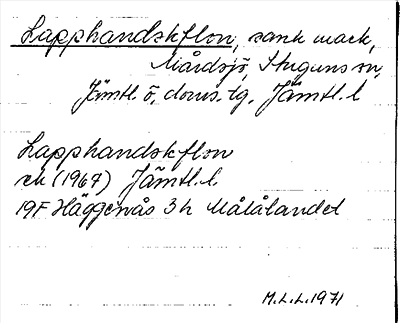 Lapphandskflon, sank mark,
Mårdsjö, Stuguns sn,
Jämtl. ö, doms. tg, Jämtl. l
Lapphandskflon
ek (1967) Jämtl. l
19F Häggenås 3h Målålandet
M.L.L. 1971